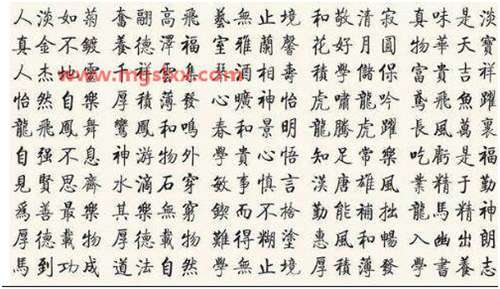 人淡如菊 奮翮高飛 藝無止境 和敬清寂 真味是淡
真金不鍍 養德澤福 室雅蘭馨 花好月圓 物華天寶
www.mgsfxx.com
人杰地靈 千祥雲集 酒相壽 學儲保 富貴吉祥
怡然自樂 厚積薄發 心曠神怡 虎嘯龍吟 鳶飛魚躍
龍飛鳳舞 鸞鳳和鳴 春和景明 龍騰虎躍 長風萬裏
自强不息 神游物外 學貴心悟 知足常樂 吃虧是福
見賢思齊 水滴石穿 敏事慎言 漢唐雄風 業精于勤
爲善最樂 其樂無窮 鍥而不捨 勤能補拙 龍馬精神
厚德載物 厚德載物 難得糊塗 惠風和暢 入幽出朗
馬到功成 道法自然 學無止境 厚積薄發 學書養志